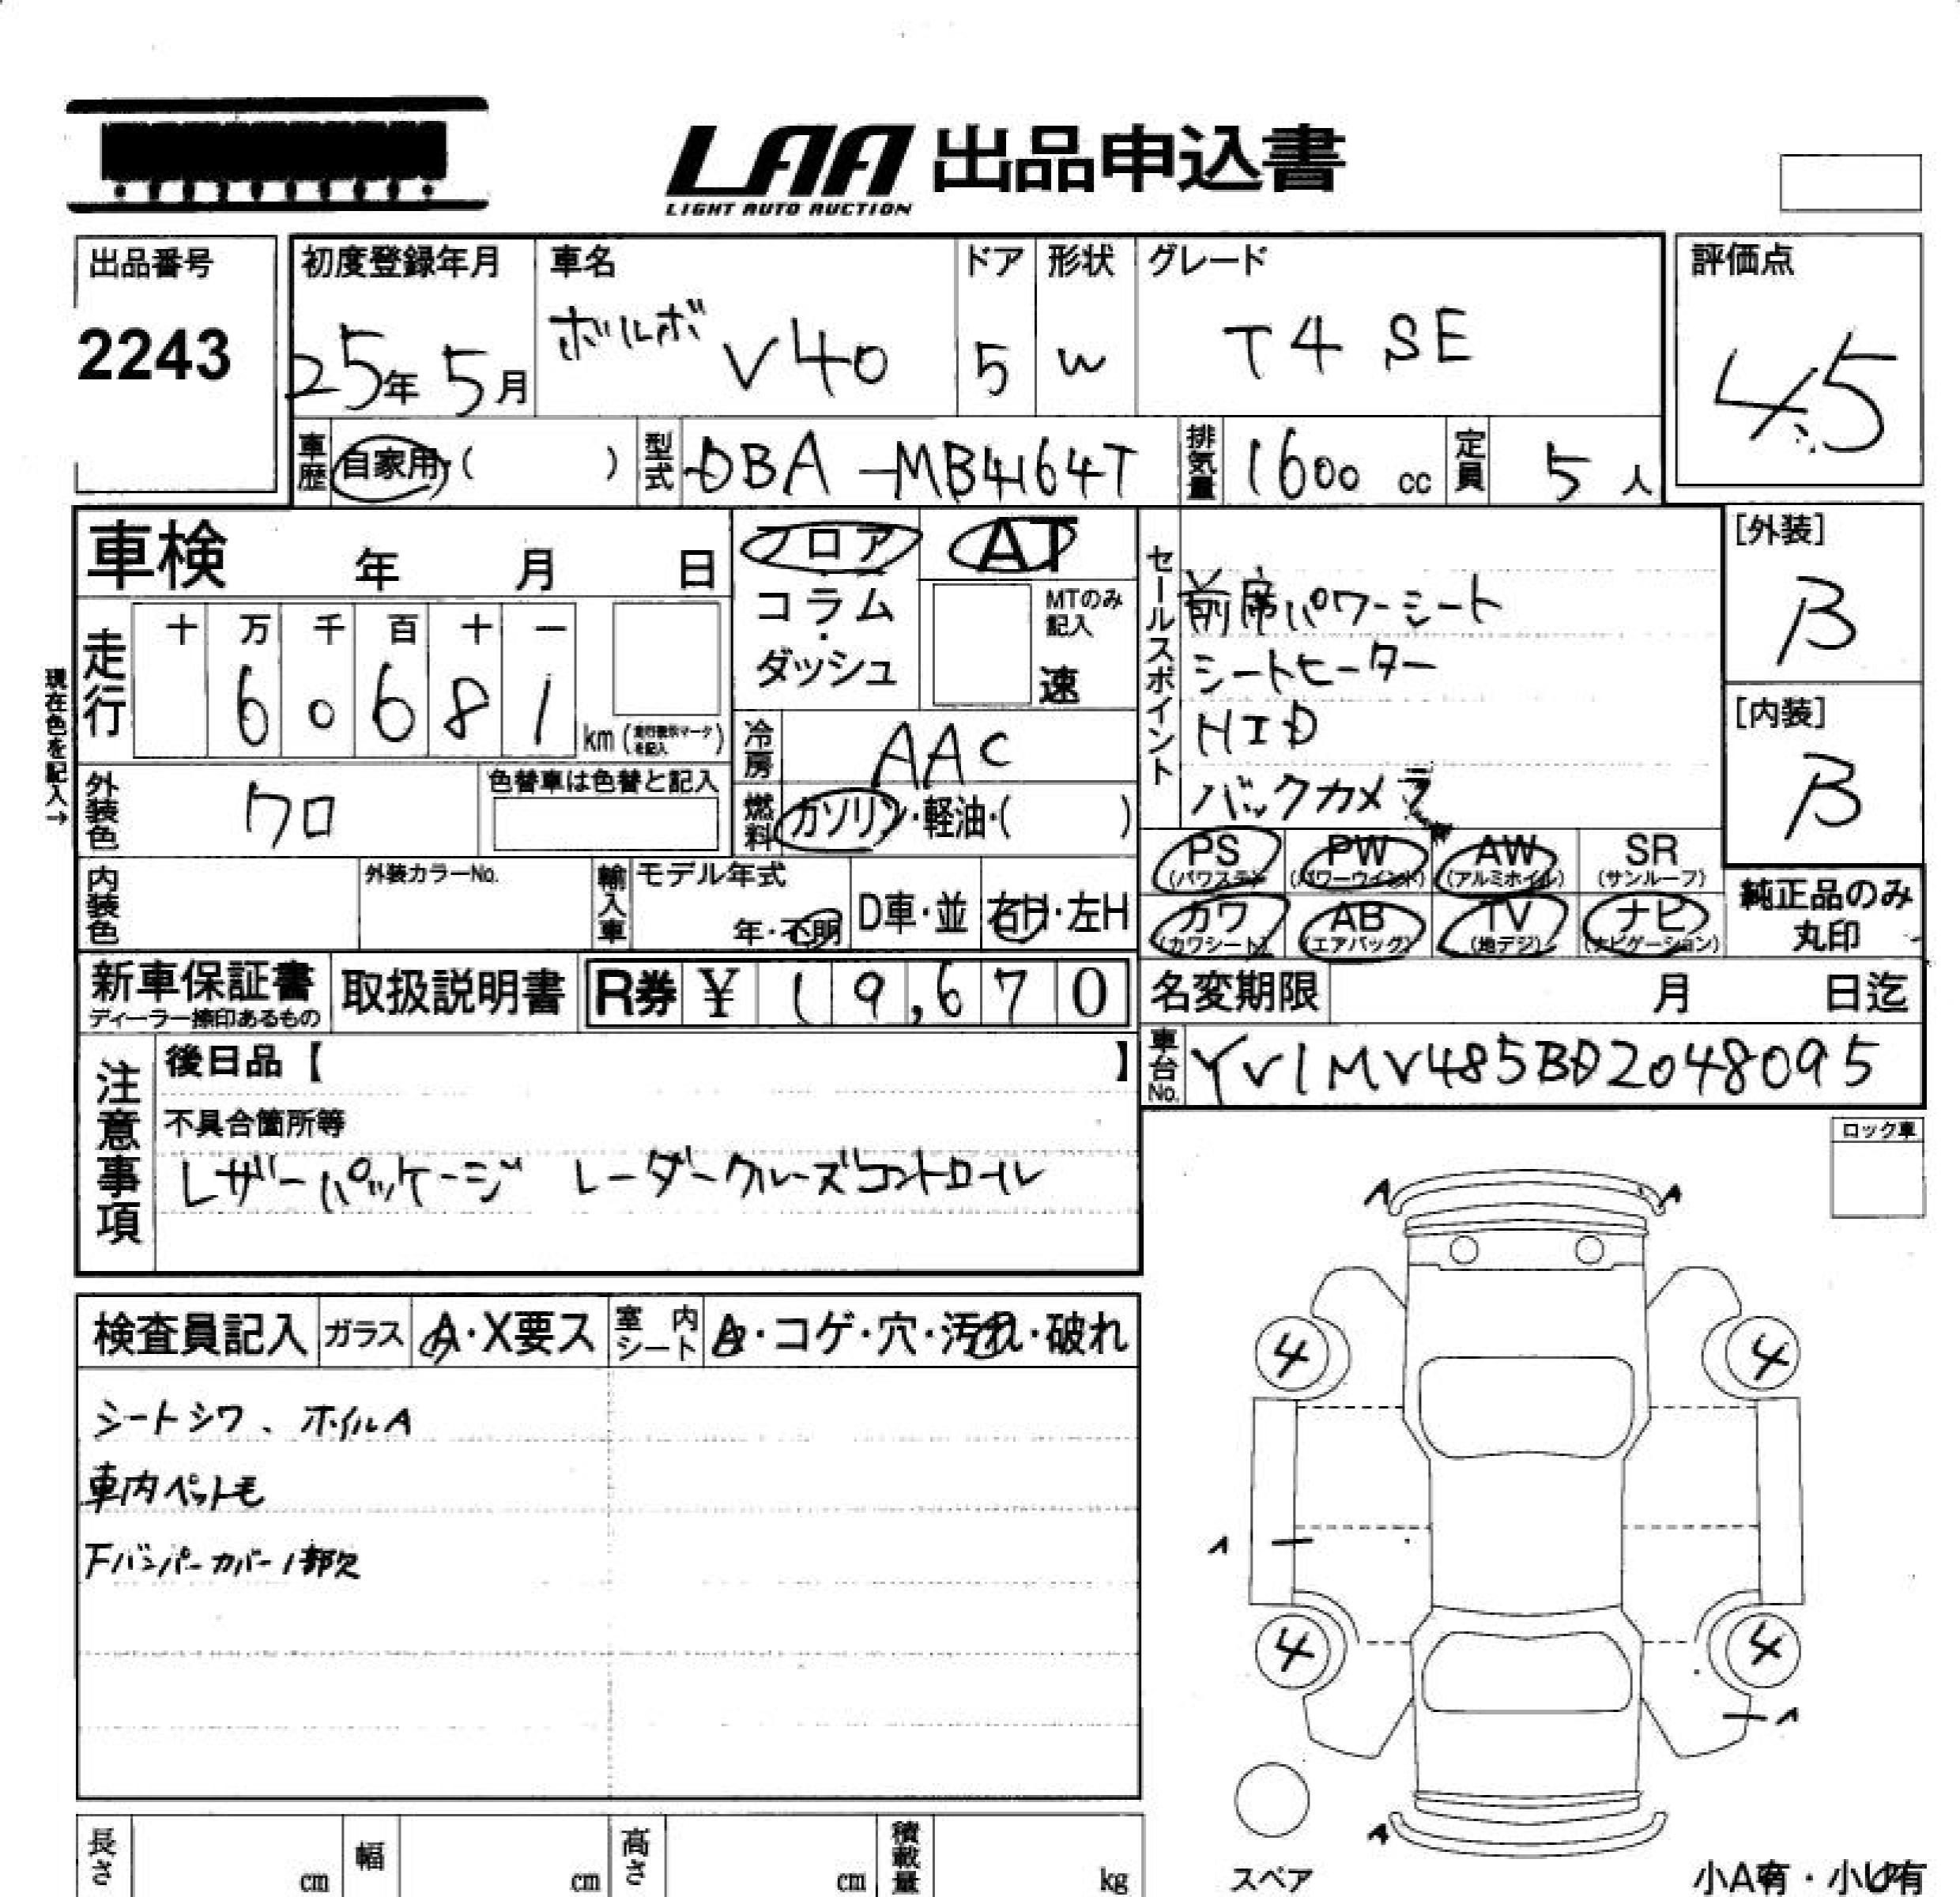 LAA 出品申込書
LIGHT AUTO AUCTION
出品番号
2243
初度登録年月
25年 5月
車名
ボルボ V40
ドア
5
形状
W
グレード
T4 SE
評価点
4.5
車歴
自家用・( )
型式
DBA-MB4164T
排気量
1600 cc
定員
5 人
車検 年 月 日
フロア
コラム・ダッシュ
AT
MTのみ記入
速
セールスポイント
前席パワーシート
シートヒーター
HID
バックカメラ
[外装]
B
[内装]
B
現在色を記入→
走行
十 万 千 百 十 一
6 0 6 8 1
km (走行表示マークを記入)
冷房
AAC
外装色
クロ
色替車は色替と記入
燃料
ガソリン・軽油・( )
PS (パワステ) PW (パワーウインド) AW (アルミホイル) SR (サンルーフ)
カワ (カワシート) AB (エアバッグ) TV (地デジ) ナビ (ナビゲーション)
純正品のみ丸印
内装色
外装カラーNo.
輸入車
モデル年式
年・不明
D車・並
右H・左H
新車保証書
ディーラー捺印あるもの
取扱説明書
R券 ¥ 1 9,6 7 0
名変期限 月 日迄
車台No.
YV1MV485BD2048095
注意事項
後日品【 】
不具合箇所等
レザーパッケージ レーダークルーズコントロール
ロック車
検査員記入
ガラス
A・X要ス
室内シート
A・コゲ・穴・汚れ・破れ
シートシワ、ホイルA
車内ペット毛
下バンパーカバー1部欠
A A
4 4
A
4 4
A
A
スペア
小A有・小U有
長さ cm
幅 cm
高さ cm
積載量 kg